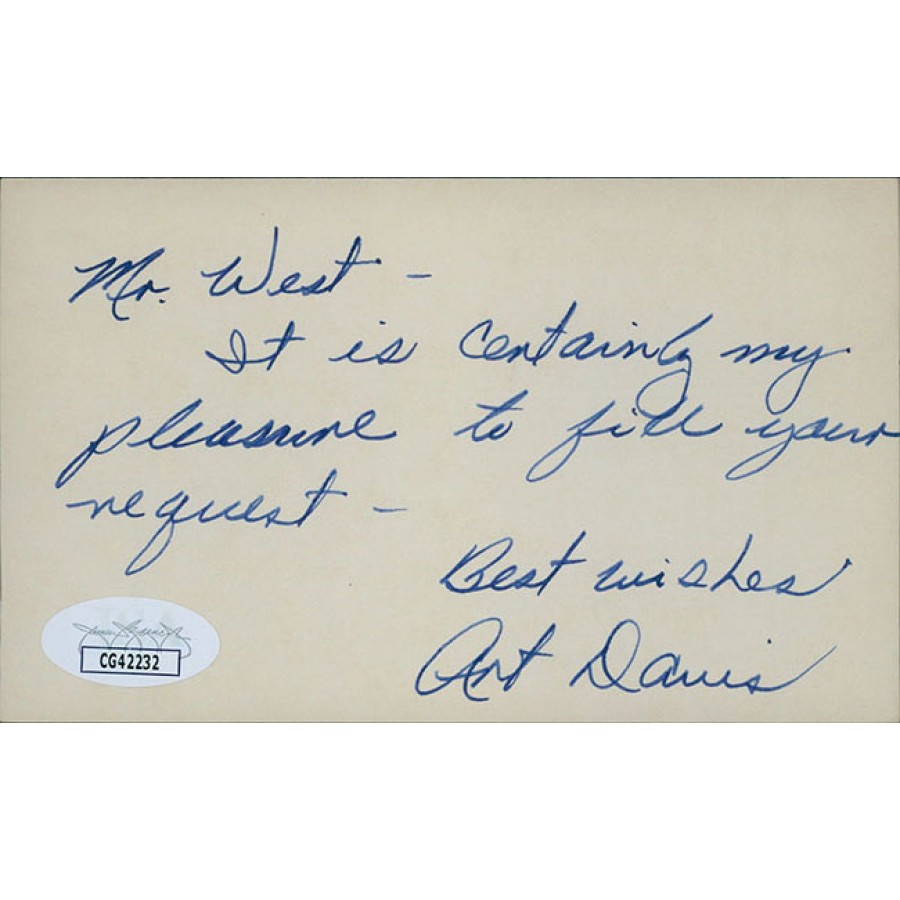 Mr. West -
It is certainly my
pleasure to fill your
request -
Best wishes
Art Davis
CG42232